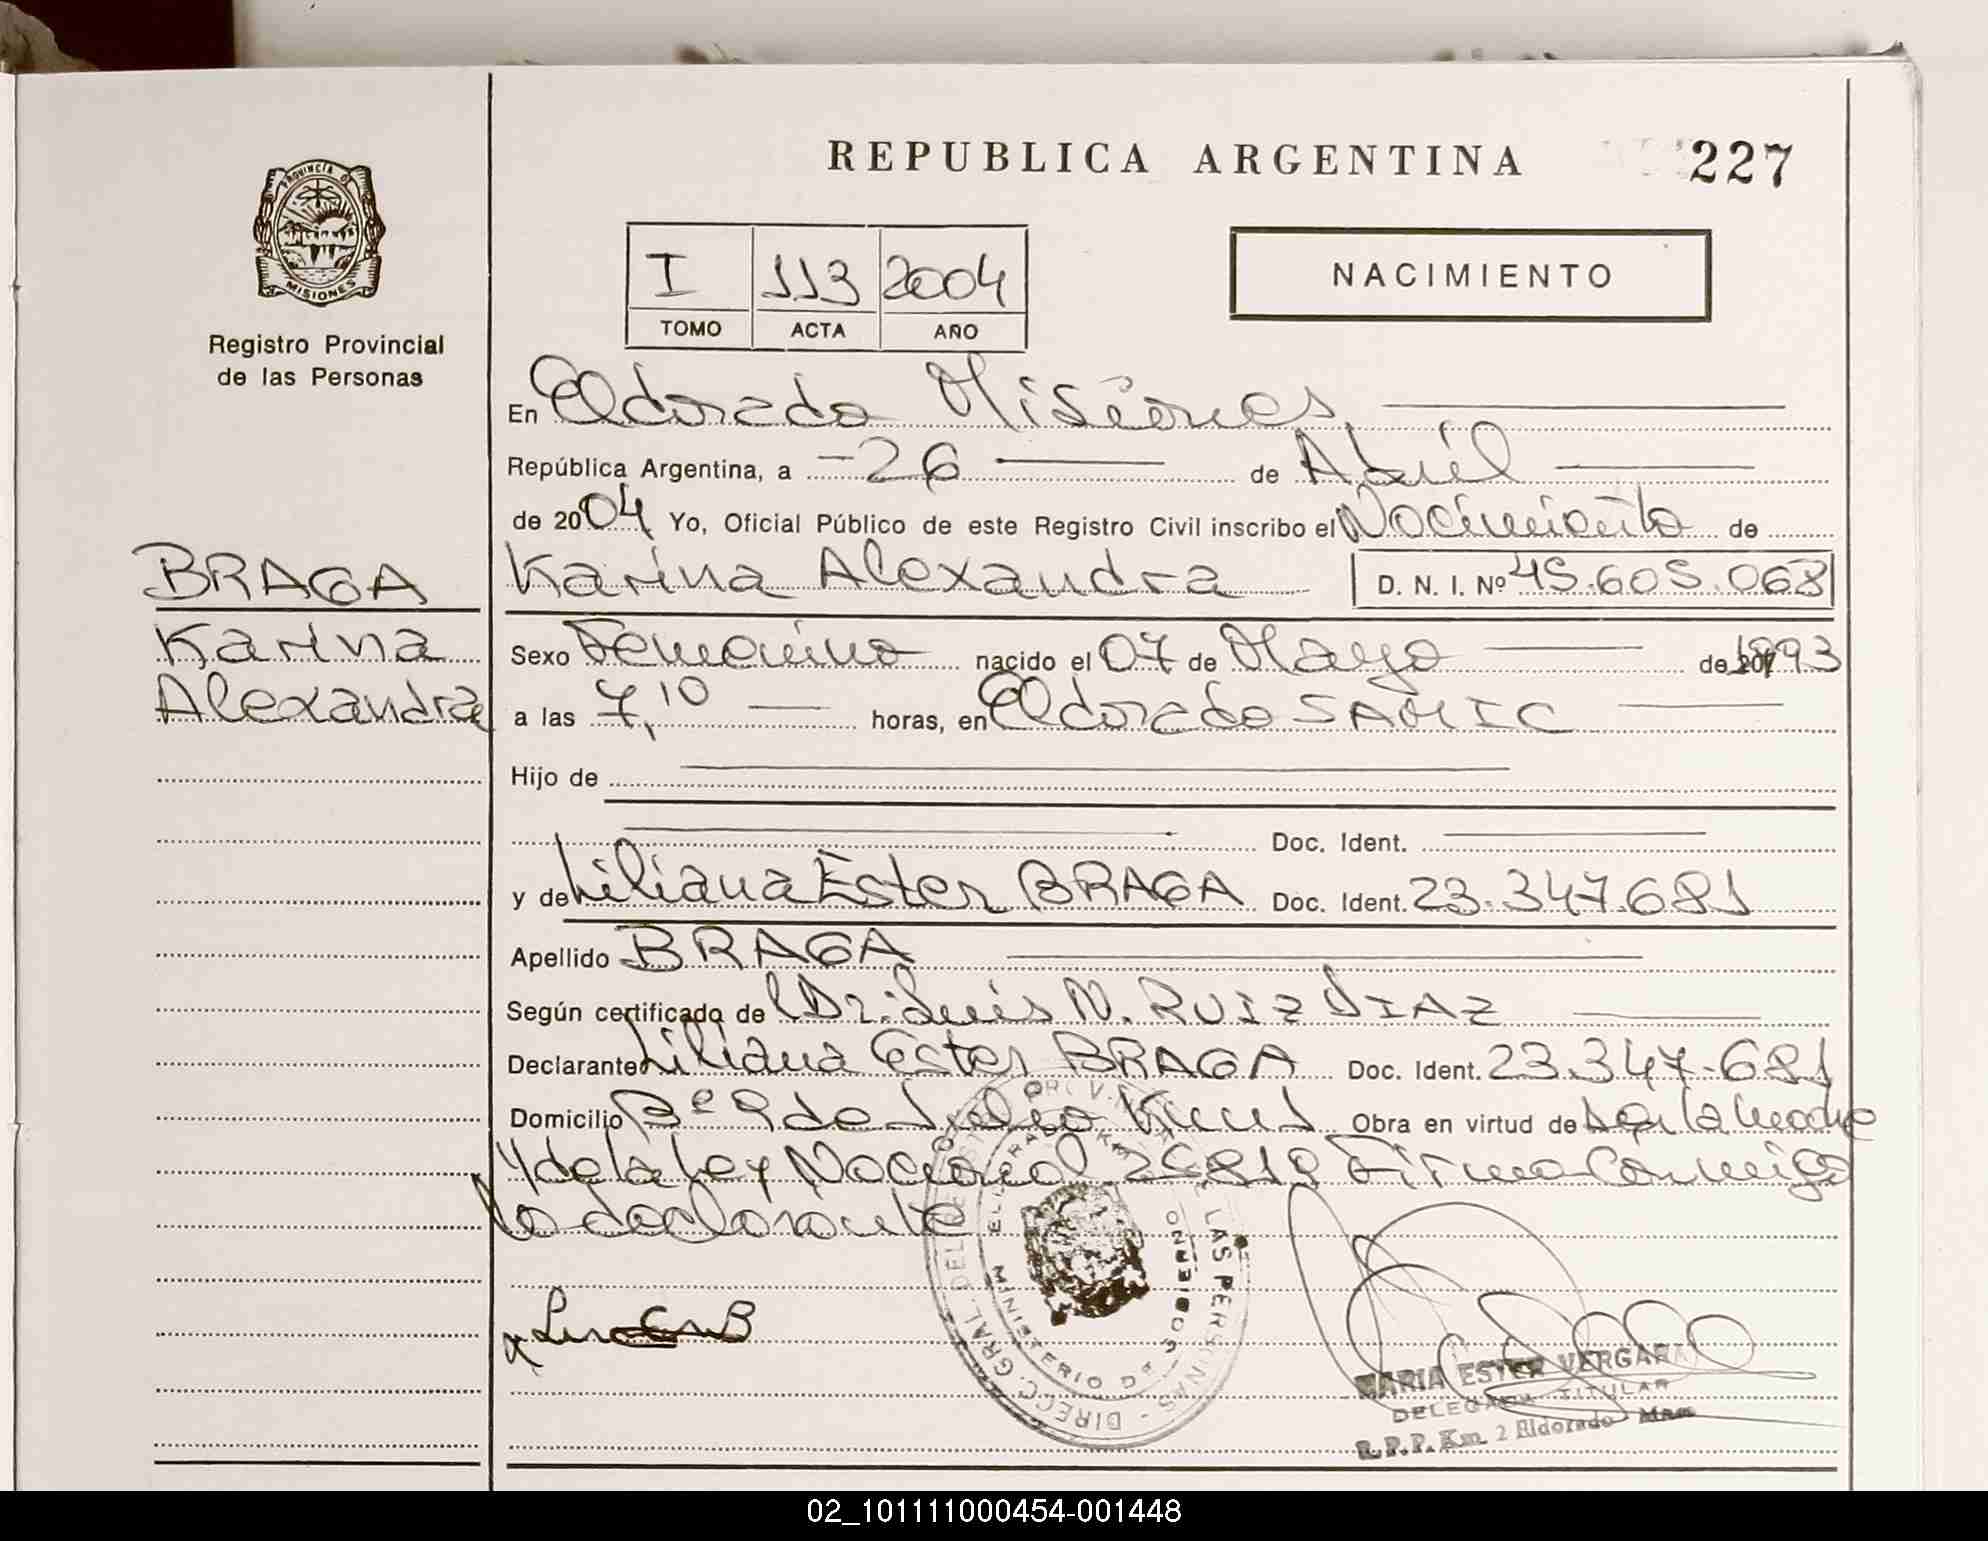 REPUBLICA ARGENTINA
227
PROVINCIA DE
MISIONES
Registro Provincial
de las Personas
I 113 2004
TOMO ACTA AÑO
NACIMIENTO
En Eldorado Misiones
República Argentina, a -26 de Abril
de 2004 Yo, Oficial Público de este Registro Civil inscribo el Nacimiento de
BRAGA
Karina Alexandra
Karina Alexandra D. N. I. Nº 45.605.068
Sexo Femenino nacido el 07 de Mayo de 1993
a las 7,10 horas, en Eldorado SAMIC
Hijo de
Doc. Ident.
y de Liliana Ester BRAGA Doc. Ident. 23.347.681
Apellido BRAGA
Según certificado de Dr. Luis N. RUIZ DIAZ
Declarante Liliana Ester BRAGA Doc. Ident. 23.347.681
Domicilio Bº 9 de Julio Obra en virtud de Ser la Madre
Y de la Ley Nacional 25819 Firma Conmigo
la declarante
MINISTERIO DE GOBIERNO
LAS PERSONAS - DIRECC. GRAL. DEL
MARIA ESTER VERGARA
DELEGADA TITULAR
R.P.P. Km. 2 Eldorado - Mnes
02_101111000454-001448